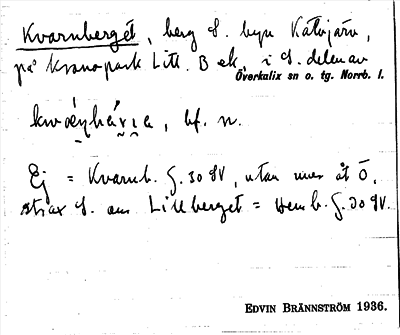 Kvarnberget, berg S. byn Kalvjärv,
på kronopark Litt. B ek, i S. delen av
Överkalix sn o. tg. Norrb. l.
bf. n.
Ej = Kvarnb. G. 30 SV, utan mer åt Ö,
strax S. om Lillberget = Hemb. G. 30 SV.
EDVIN BRÄNNSTRÖM 1936.